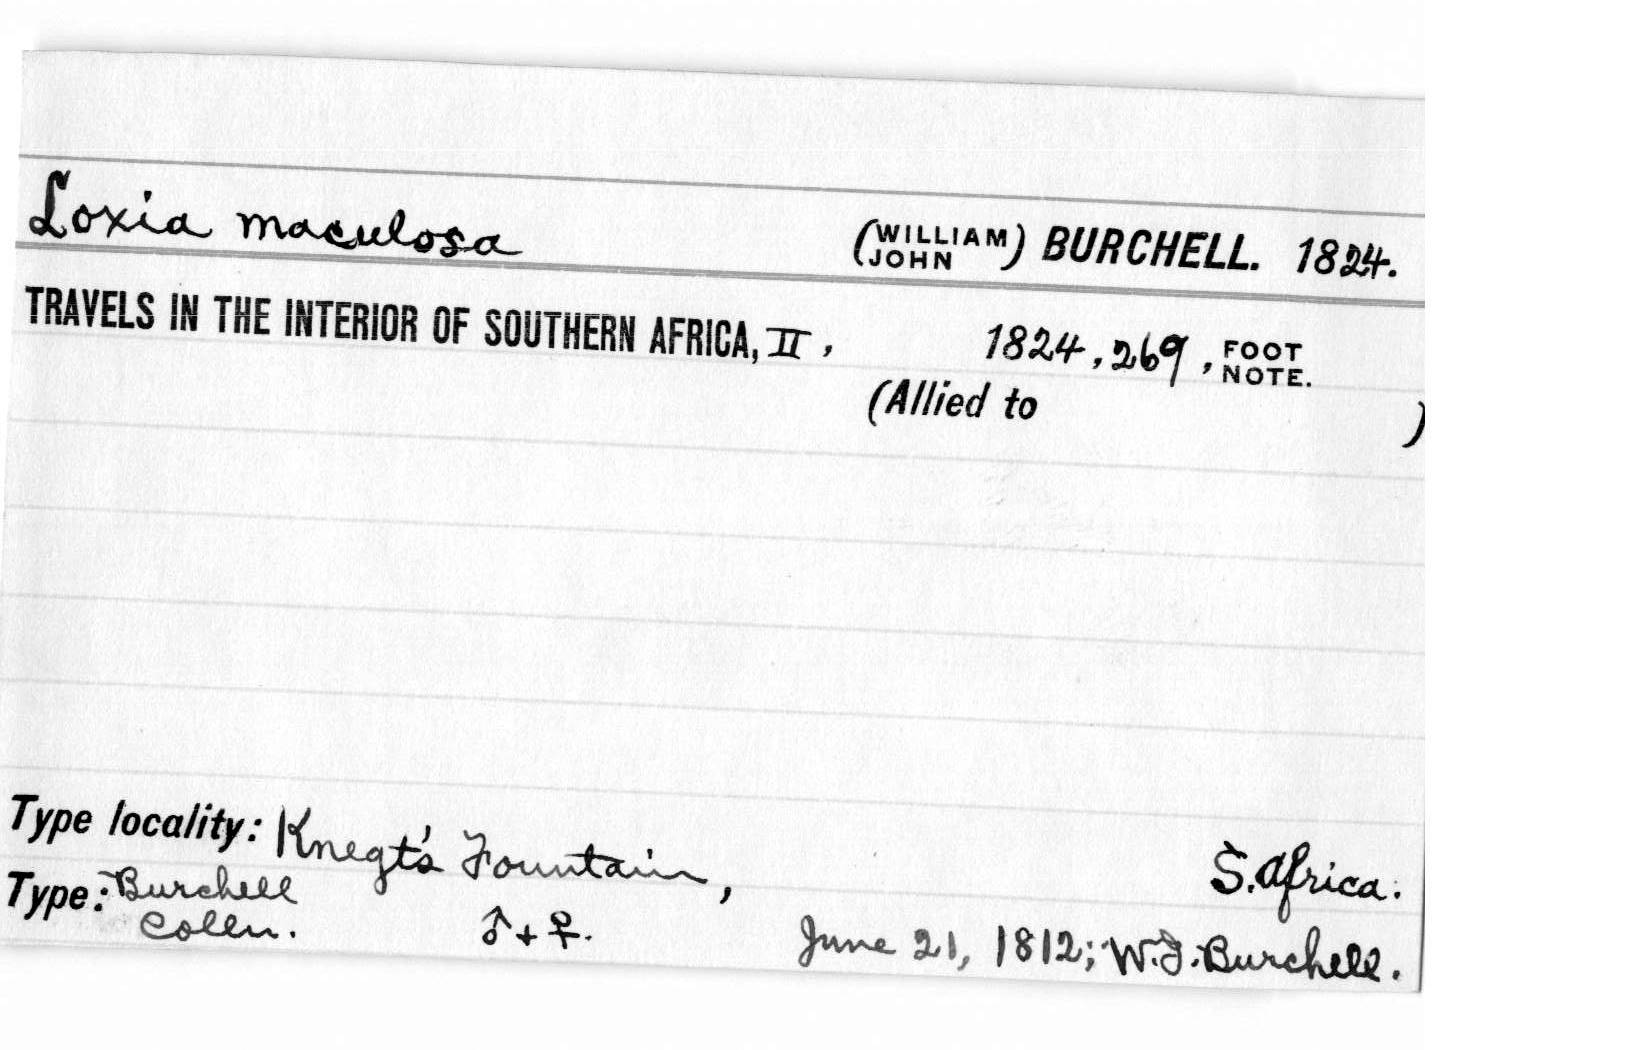 Loxia maculosa (WILLIAM JOHN) BURCHELL. 1824.
TRAVELS IN THE INTERIOR OF SOUTHERN AFRICA, II, 1824, 269, FOOT NOTE.
(Allied to )
Type locality: Knegt's Fountain, S. Africa.
Type: Burchell Colln. ♂ + ♀. June 21, 1812; W.J. Burchell.